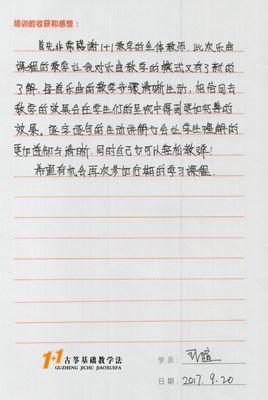 培训的收获和感想：
首先非常感谢1+1教学的全体教师，此次乐曲
课程的教学让我对乐曲教学的模式又有了新的
了解，每首乐曲的教学步骤清晰生动，相信回去
教学的效果会在学生们的呈现中得到更加完善的
效果。逐字逐句的生动讲解也会让学生理解的
更加透彻与清晰，同时自己也可以轻松教课！
希望有机会再次参加后期的学习课程
1+1古筝基础教学法
GUZHENG JICHU JIAOXUEFA
学员：
日期：2017.9.20